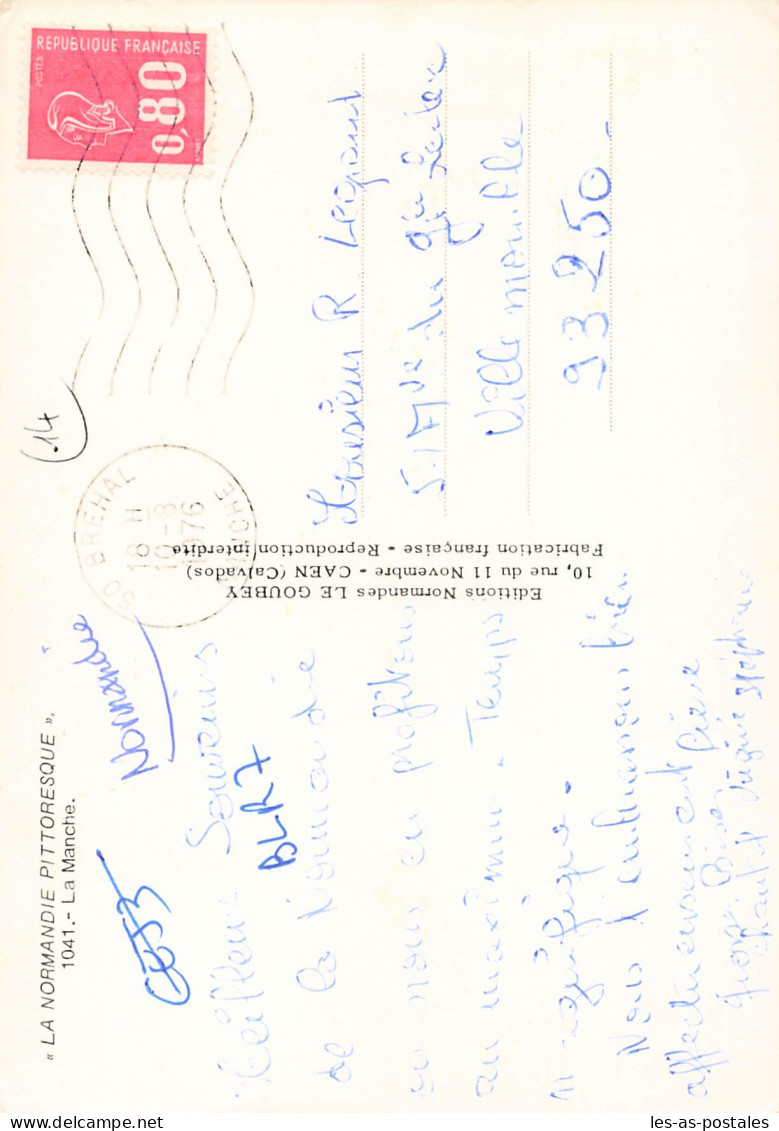 « LA NORMANDIE PITTORESQUE ».
1041.- La Manche.
Normandie
BLA7
Meilleurs Souvenirs
de la Normandie
où nous en profitons
au maximum. Temps
magnifique.
Nous t'embrassons bien
affectueusement
Bises
Chantal Stéphane
Editions Normandes LE GOUBEY
10, rue du 11 Novembre - CAEN (Calvados)
Fabrication française - Reproduction interdite
REPUBLIQUE FRANÇAISE
POSTES
0,80
50 BREHAL
18 H
10-8
1976
MANCHE
.14
Monsieur R
51 Ave du
Villemomble
93250
les-as-postales